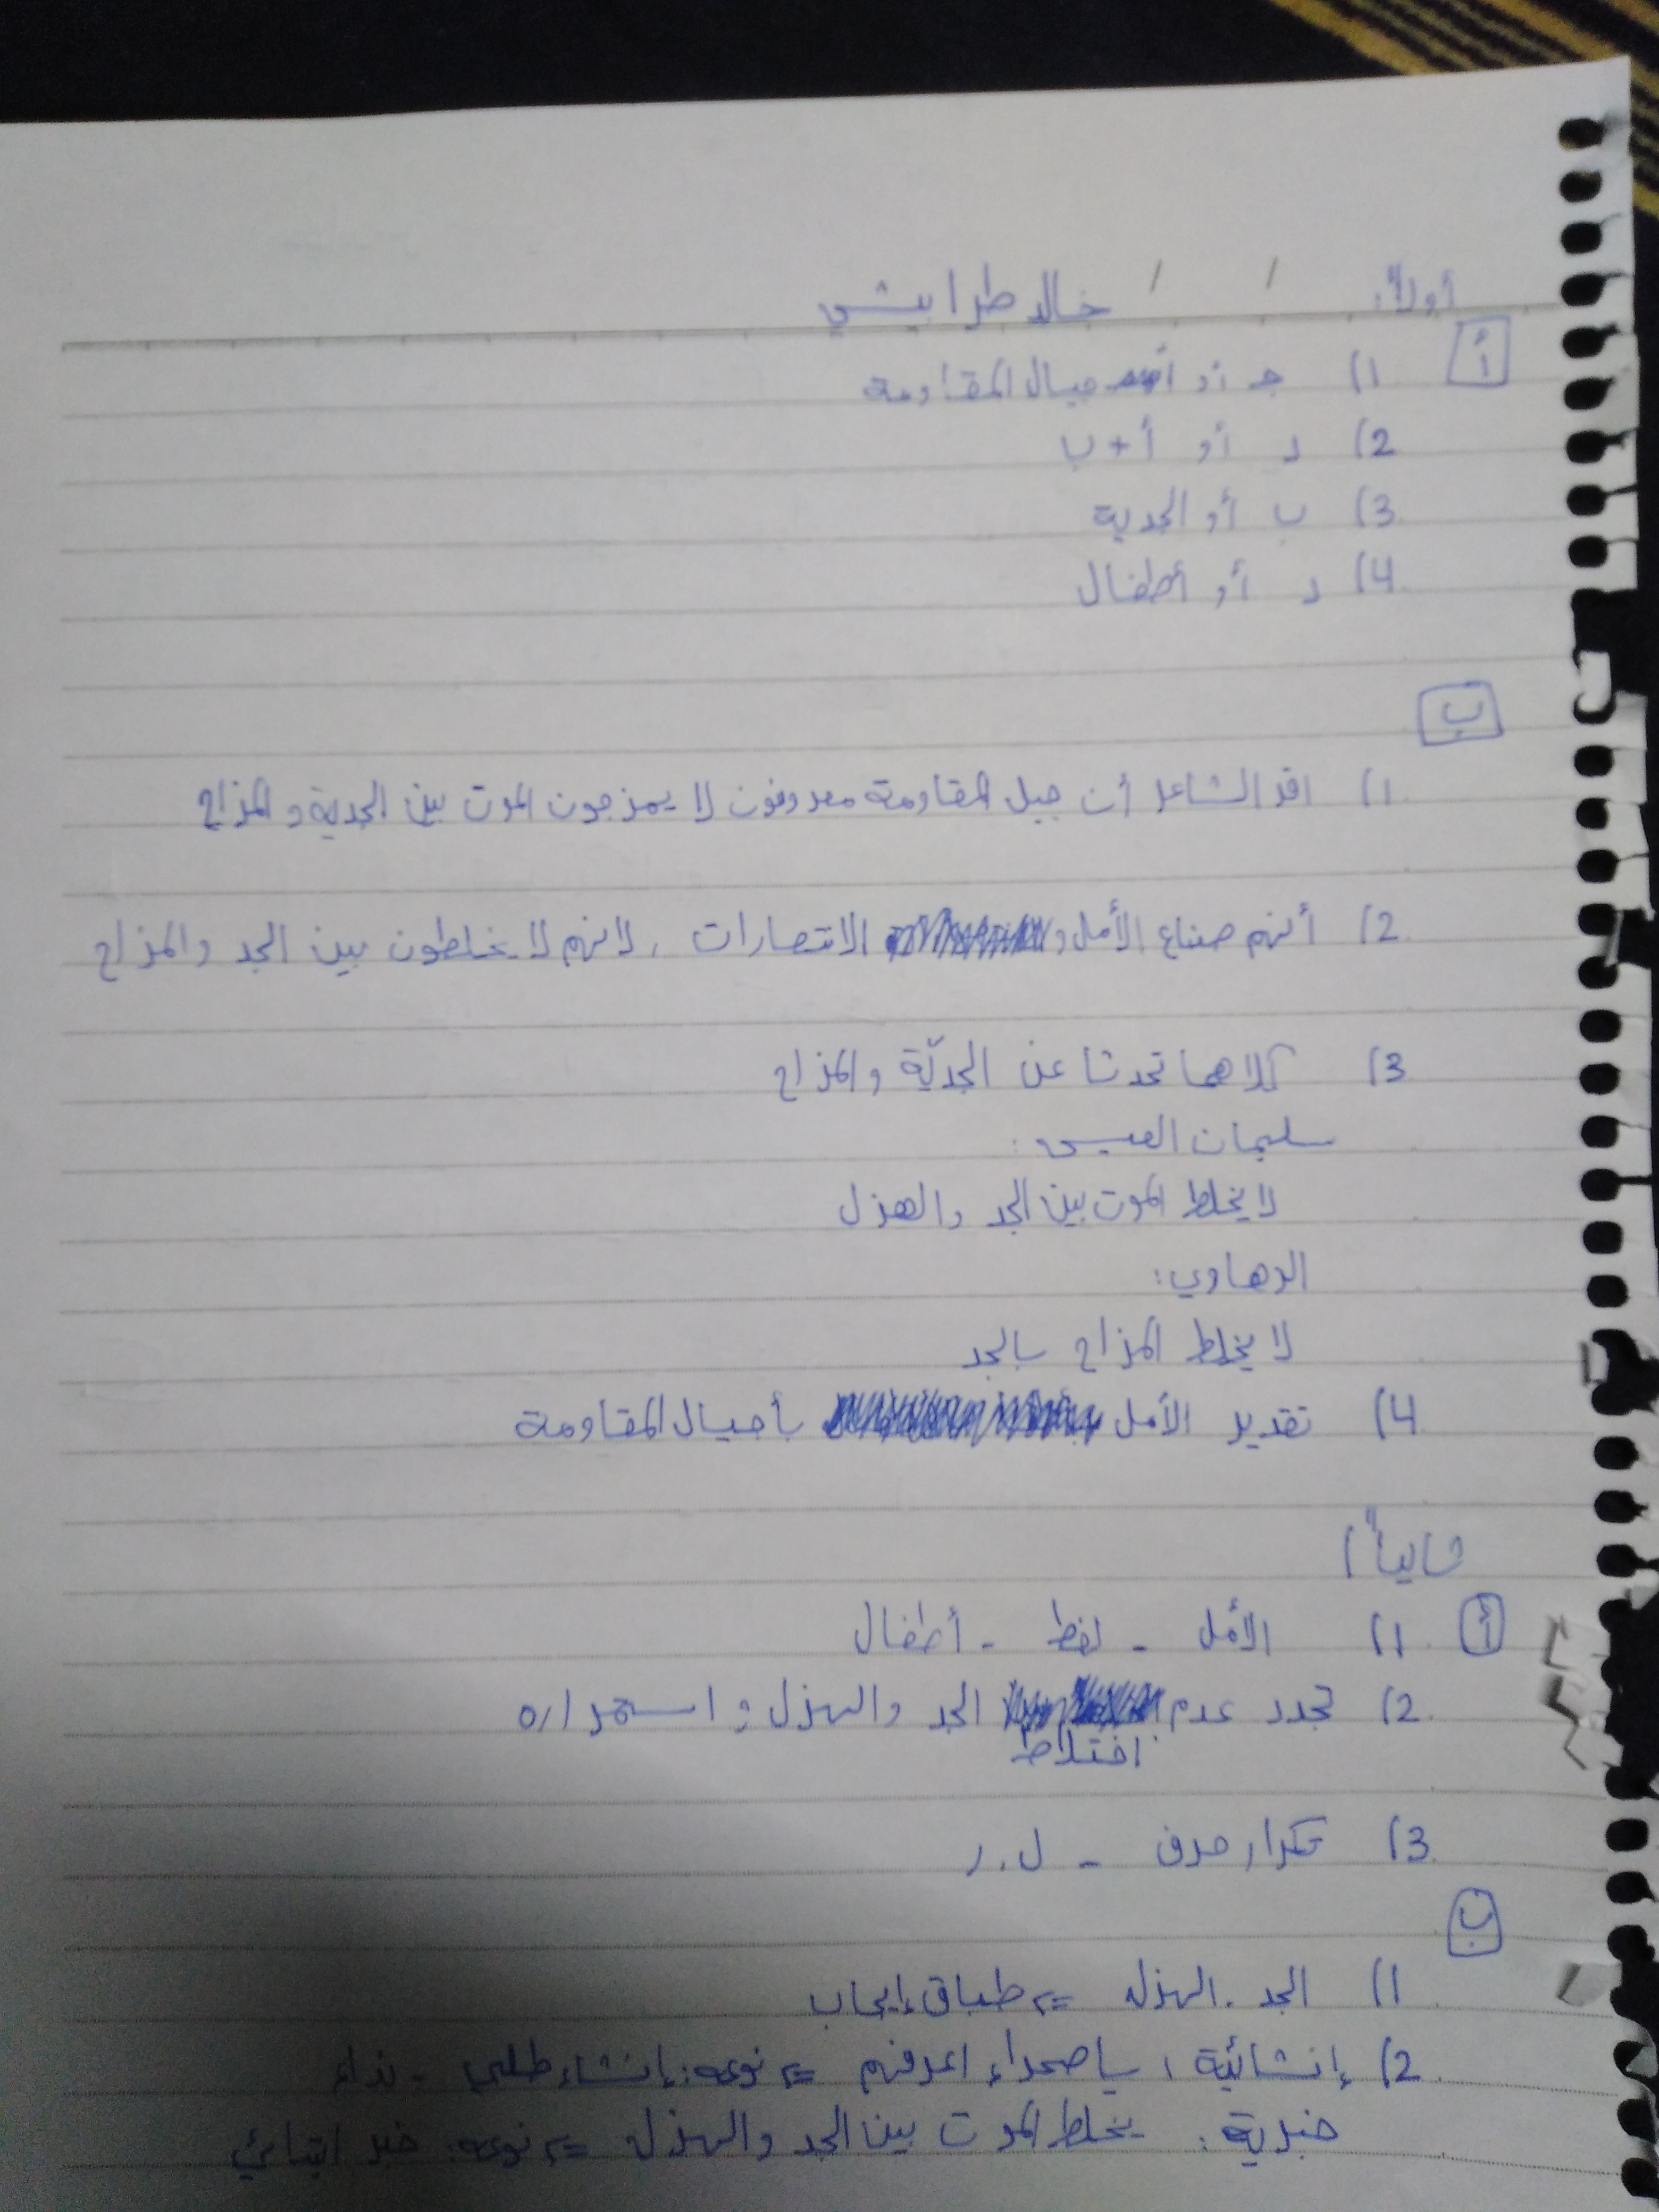 أولاً: / / خالد طرابيشي
أ 1) جـ أو أجيال المقاومة
2) د أو أ + ب
3) ب أو الجدية
4) د أو أطفال
ب
1) اقر الشاعر أن جيل المقاومة معروفون لا يمزجون الموت بين الجدية و المزاح
2) أنهم صناع الأمل و الانتصارات ، لانهم لا يخلطون بين الجد والمزاح
3) كلاهما تحدثا عن الجديّة والمزاح
سليمان العيسى:
لا يخلط الموت بين الجد والهزل
الرهاوي:
لا يخلط المزاح بالجد
4) تقدير الأمل بأجيال المقاومة
ثانياً)
أ 1) الأمل - لفظ - أطفال
2) تجدد عدم اختلاط الجد والهزل و استمراره
3) تكرار حرف - ل . ر
ب
1) الجد . الهزل => طباق إيجاب
2) إنشائية : يا صحراء اعرفهم => نوعه: إنشاء طلبي - نداء
خبرية: يخلط الموت بين الجد والهزل => نوعه: خبر ابتدائي